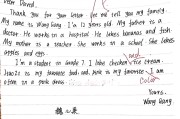 Dear David.
Thank you for your letter. let me tell you my family.
My name is Wang Gang. I'm 12 years old. My father is a
doctor. He works in a hospital. He likes bananas and fish.
My mother is a teacher. She works in a school. She likes
apples and eggs.
I'm a student in Grade 7 I like chicken and ice cream.
is my favorite food and pink is my favorite color. I am
often in a pink dress.
Yours,
Wang Gang